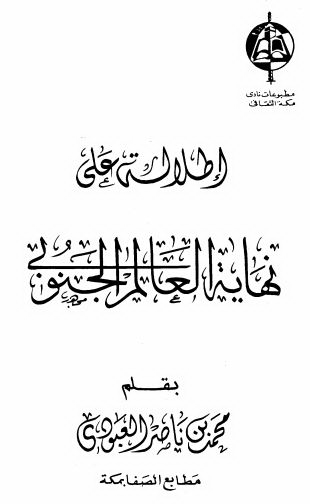 مطبوعات نادي
مكة الثقافي
إطلالة على
نهاية العالم الجنوبي
بقلم
محمد بن ناصر العبودي
مطابع الصفا بمكة